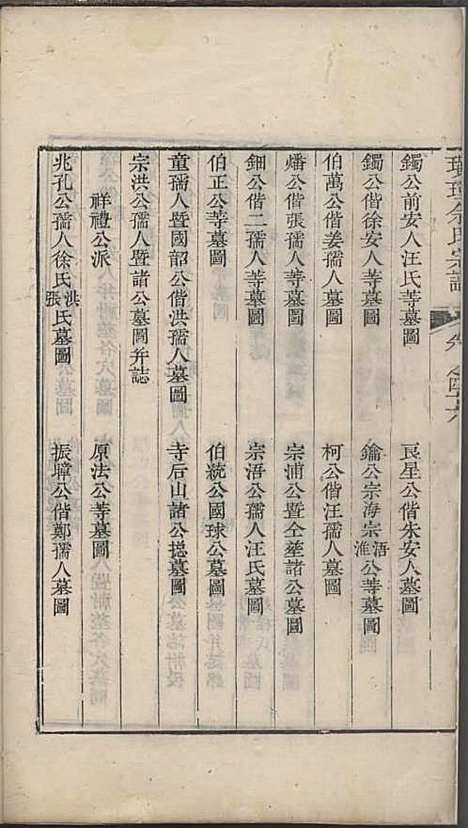 鐲公前安人汪氏等墓圖　艮星公偕朱安人墓圖
鐲公偕徐安人等墓圖　鑰公宗海宗浯淮公等墓圖
伯萬公偕姜孺人墓圖　柯公偕汪孺人墓圖
燔公偕張孺人等墓圖　宗浦公暨仝塟諸公墓圖
鈿公偕二孺人等墓圖　宗浯公孺人汪氏墓圖
伯正公等墓圖　伯統公國球公墓圖
童孺人暨國韶公偕洪孺人墓圖　寺后山諸公摠墓圖
宗洪公孺人暨諸公墓圖并誌
祥禮公派　原法公等墓圖
兆孔公孺人徐氏洪張氏墓圖　振暐公偕鄭孺人墓圖